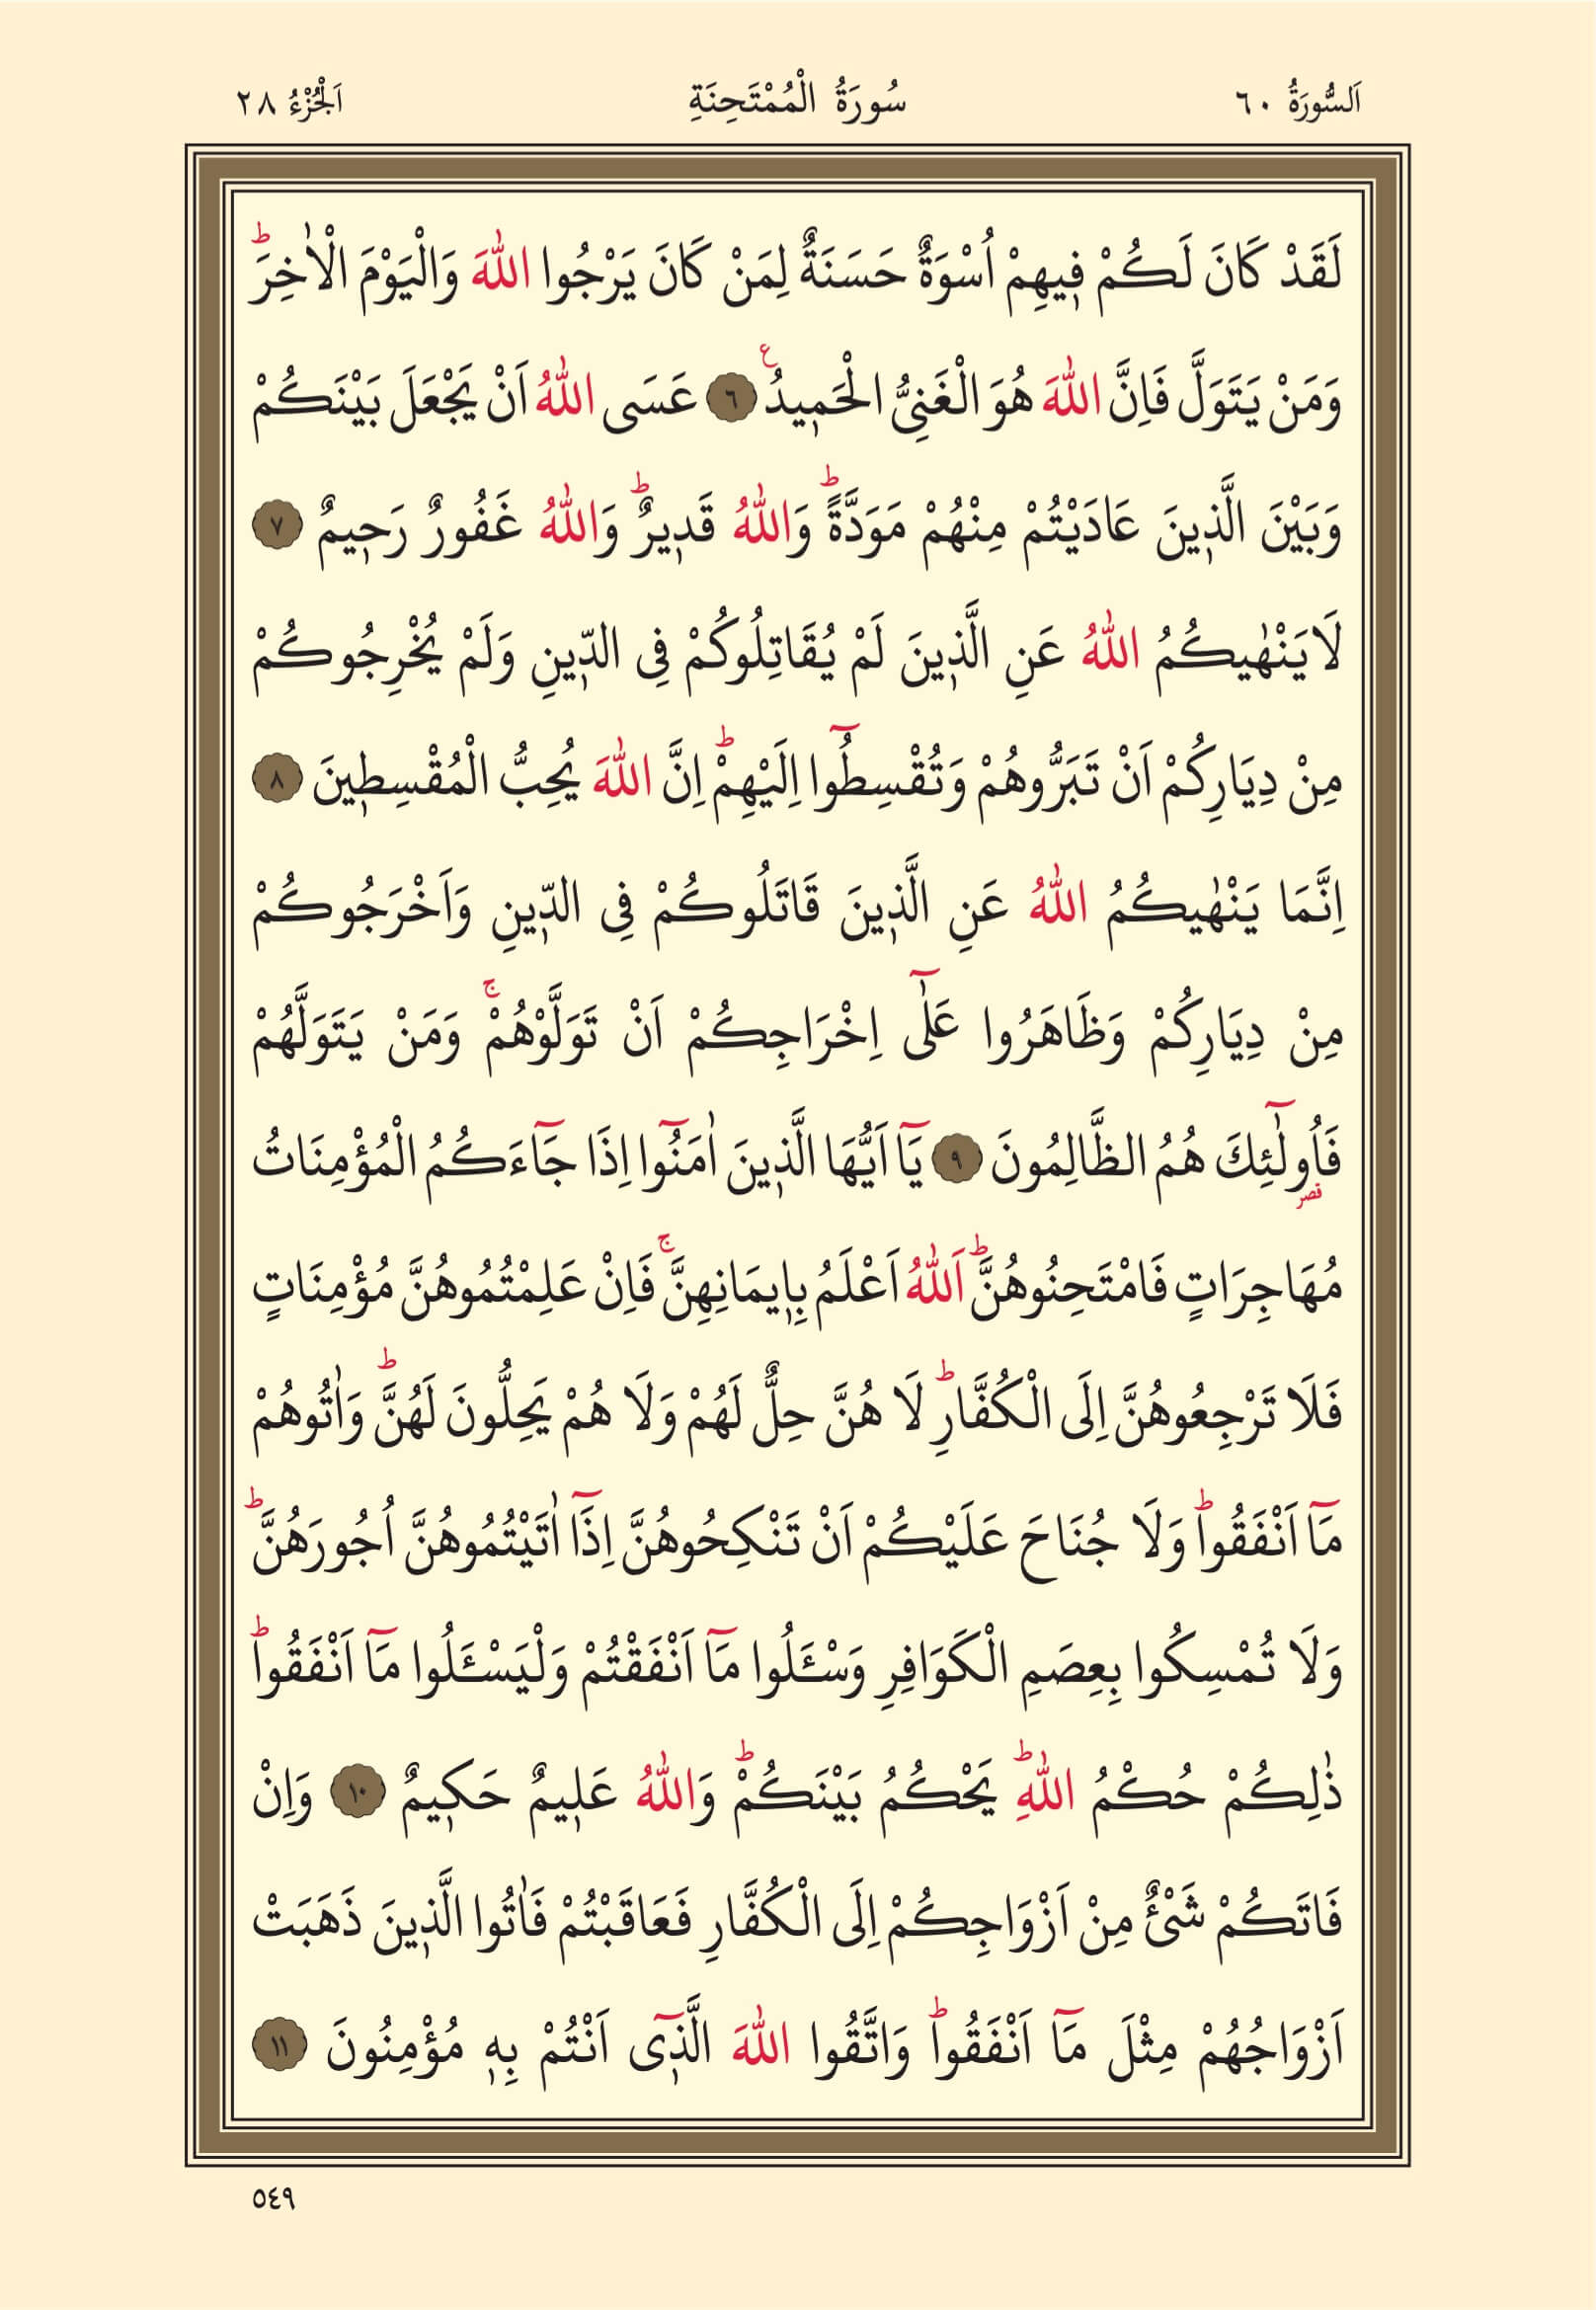 اَلسُّورَةُ ٦٠ سُورَةُ الْمُمْتَحِنَةِ اَلْجُزْءُ ٢٨
لَقَدْ كَانَ لَكُمْ ف۪يهِمْ اُسْوَةٌ حَسَنَةٌ لِمَنْ كَانَ يَرْجُوا اللّٰهَ وَالْيَوْمَ الْاٰخِرَۜ
وَمَنْ يَتَوَلَّ فَاِنَّ اللّٰهَ هُوَ الْغَنِيُّ الْحَم۪يدُ۟ ٦ عَسَى اللّٰهُ اَنْ يَجْعَلَ بَيْنَكُمْ
وَبَيْنَ الَّذ۪ينَ عَادَيْتُمْ مِنْهُمْ مَوَدَّةًۜ وَاللّٰهُ قَد۪يرٌۜ وَاللّٰهُ غَفُورٌ رَح۪يمٌ ٧
لَا يَنْهٰيكُمُ اللّٰهُ عَنِ الَّذ۪ينَ لَمْ يُقَاتِلُوكُمْ فِي الدّ۪ينِ وَلَمْ يُخْرِجُوكُمْ
مِنْ دِيَارِكُمْ اَنْ تَبَرُّوهُمْ وَتُقْسِطُٓوا اِلَيْهِمْۜ اِنَّ اللّٰهَ يُحِبُّ الْمُقْسِط۪ينَ ٨
اِنَّمَا يَنْهٰيكُمُ اللّٰهُ عَنِ الَّذ۪ينَ قَاتَلُوكُمْ فِي الدّ۪ينِ وَاَخْرَجُوكُمْ
مِنْ دِيَارِكُمْ وَظَاهَرُوا عَلٰٓى اِخْرَاجِكُمْ اَنْ تَوَلَّوْهُمْۚ وَمَنْ يَتَوَلَّهُمْ
فَاُو۬لٰٓئِكَ هُمُ الظَّالِمُونَ ٩ يَٓا اَيُّهَا الَّذ۪ينَ اٰمَنُٓوا اِذَا جَٓاءَكُمُ الْمُؤْمِنَاتُ
قصر
مُهَاجِرَاتٍ فَامْتَحِنُوهُنَّۜ اَللّٰهُ اَعْلَمُ بِا۪يمَانِهِنَّۚ فَاِنْ عَلِمْتُمُوهُنَّ مُؤْمِنَاتٍ
فَلَا تَرْجِعُوهُنَّ اِلَى الْكُفَّارِۜ لَا هُنَّ حِلٌّ لَهُمْ وَلَا هُمْ يَحِلُّونَ لَهُنَّۜ وَاٰتُوهُمْ
مَٓا اَنْفَقُواۜ وَلَا جُنَاحَ عَلَيْكُمْ اَنْ تَنْكِحُوهُنَّ اِذَٓا اٰتَيْتُمُوهُنَّ اُجُورَهُنَّۜ
وَلَا تُمْسِكُوا بِعِصَمِ الْكَوَافِرِ وَسْـَٔلُوا مَٓا اَنْفَقْتُمْ وَلْيَسْـَٔلُوا مَٓا اَنْفَقُواۜ
ذٰلِكُمْ حُكْمُ اللّٰهِۜ يَحْكُمُ بَيْنَكُمْۜ وَاللّٰهُ عَل۪يمٌ حَك۪يمٌ ١٠ وَاِنْ
فَاتَكُمْ شَيْءٌ مِنْ اَزْوَاجِكُمْ اِلَى الْكُفَّارِ فَعَاقَبْتُمْ فَاٰتُوا الَّذ۪ينَ ذَهَبَتْ
اَزْوَاجُهُمْ مِثْلَ مَٓا اَنْفَقُواۜ وَاتَّقُوا اللّٰهَ الَّذ۪ٓي اَنْتُمْ بِه۪ مُؤْمِنُونَ ١١
٥٤٩